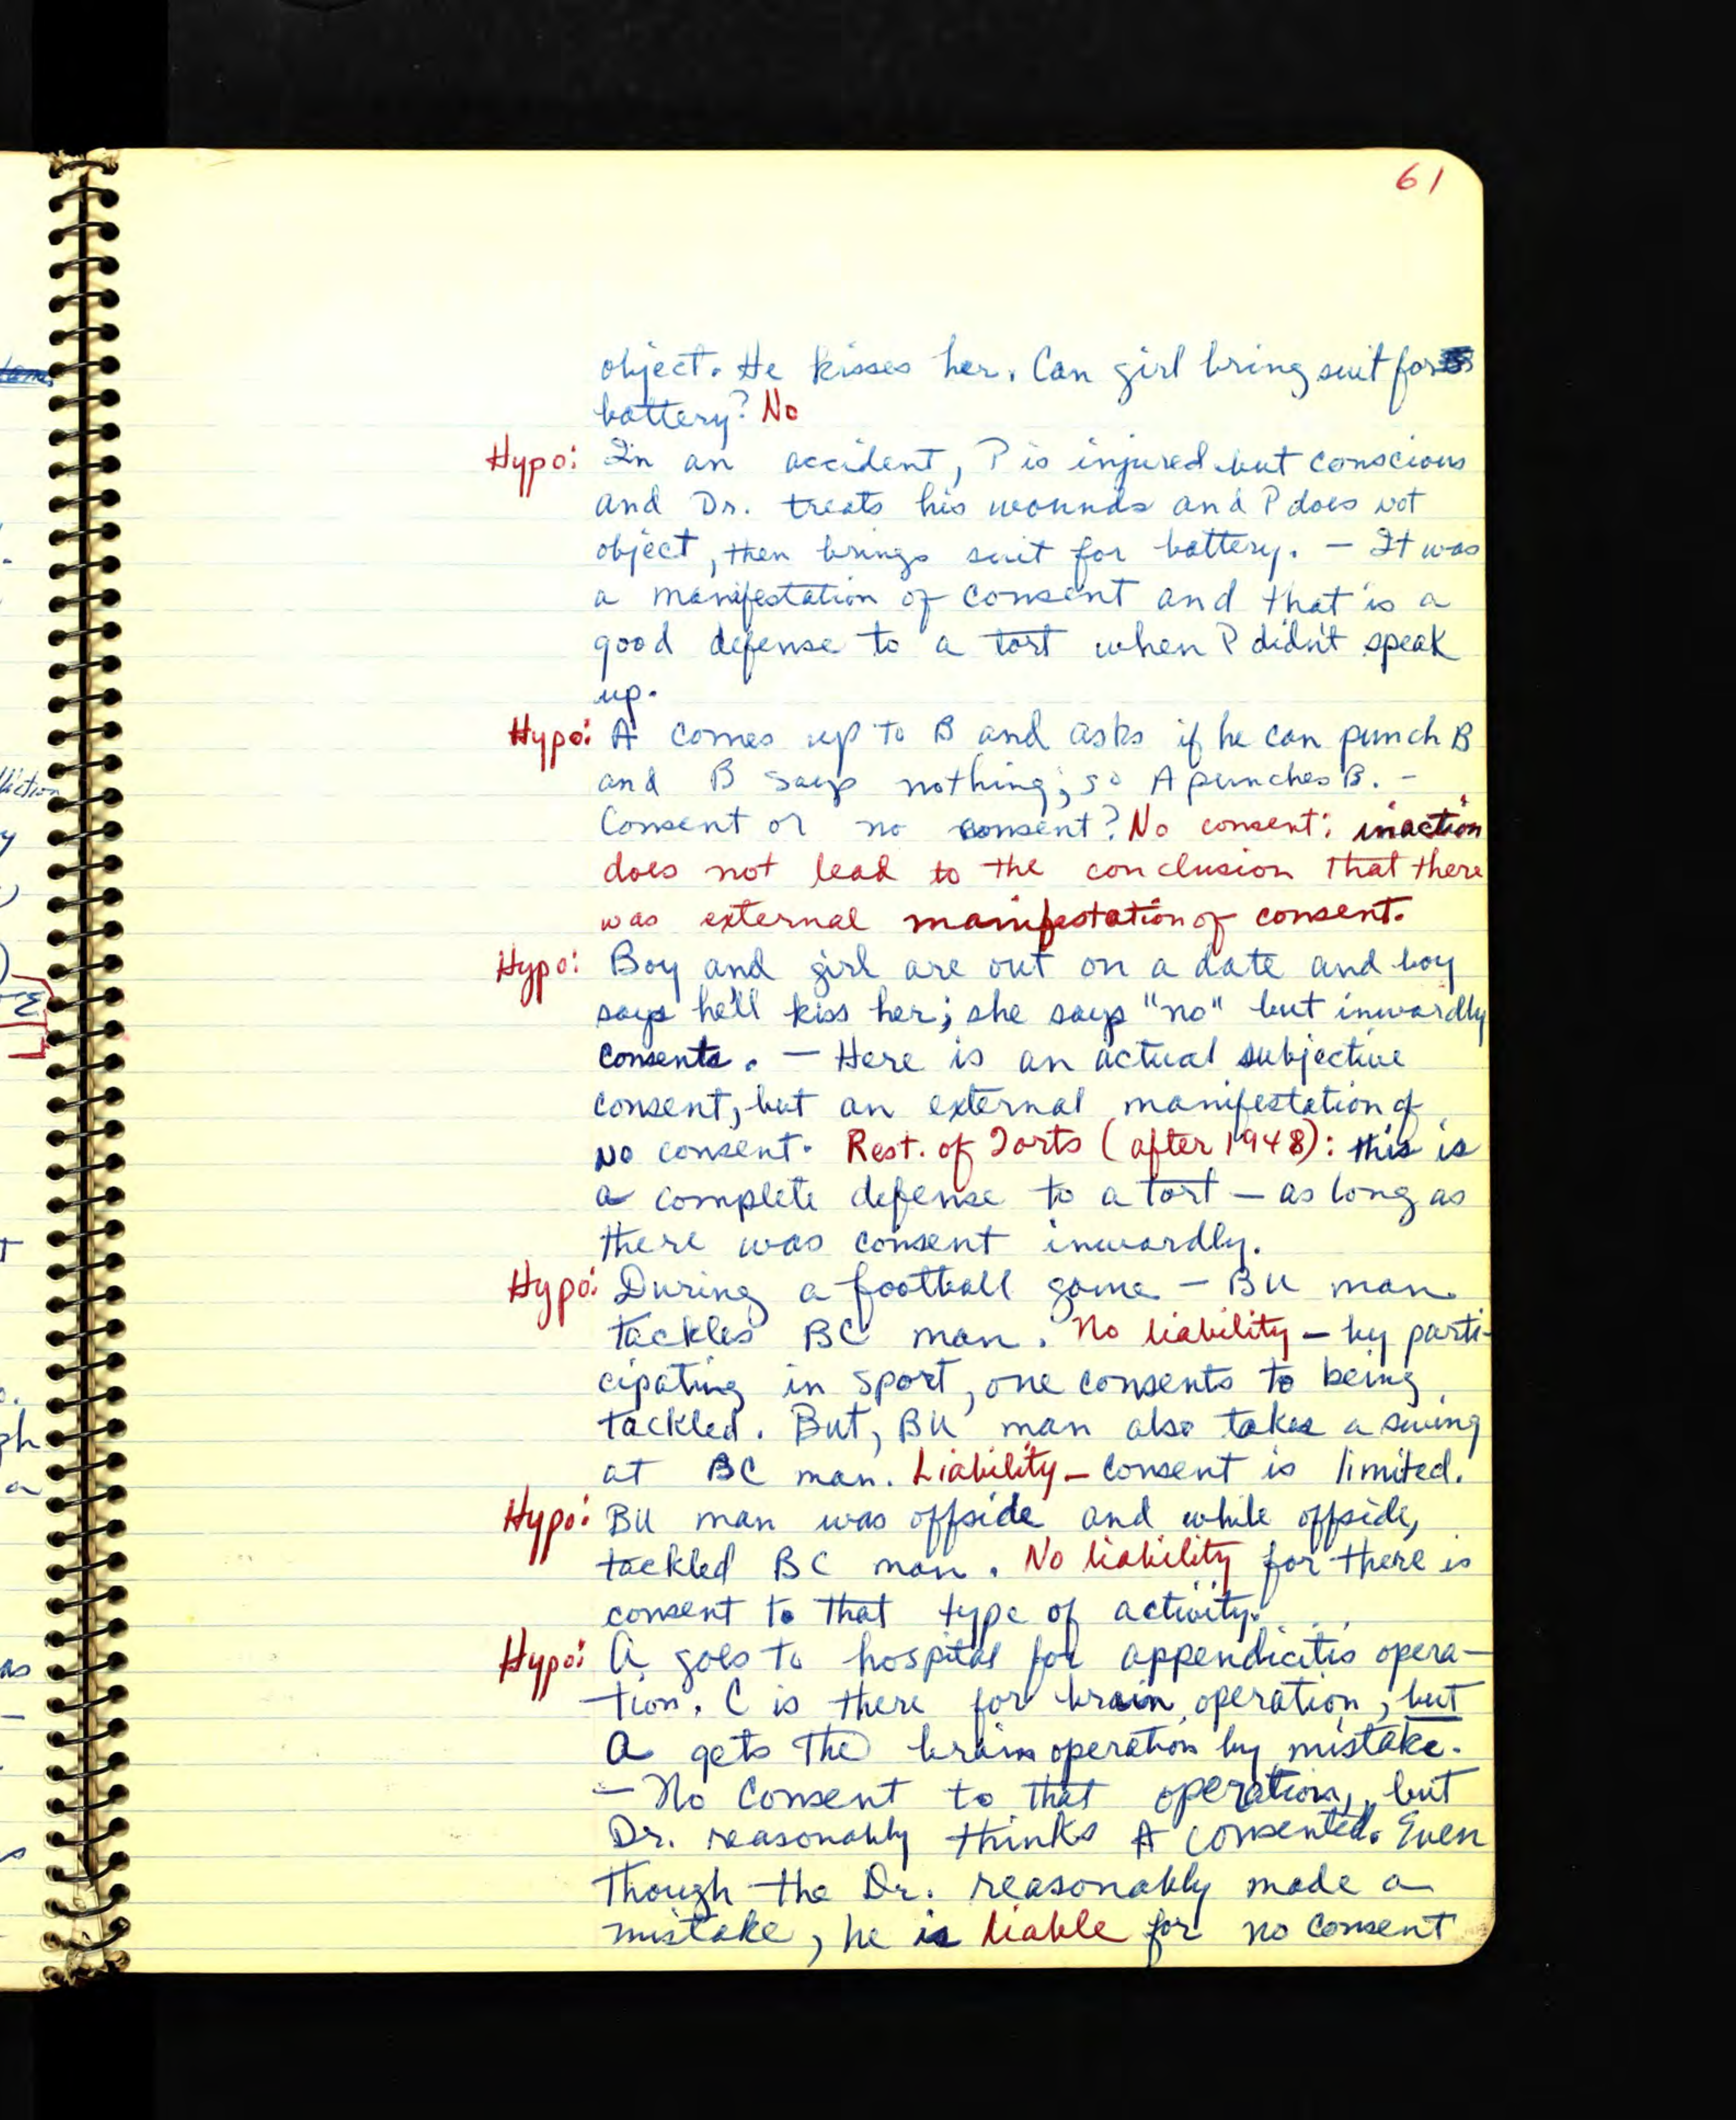 61
object. He kisses her. Can girl bring suit for
battery? No
Hypo: In an accident, P is injured but conscious
and Dr. treats his wounds and P does not
object, then brings suit for battery. — It was
a manifestation of consent and that is a
good defense to a tort when P didn't speak
up.
Hypo: A comes up to B and asks if he can punch B
and B says nothing; so A punches B. —
Consent or no consent? No consent: inaction
does not lead to the conclusion that there
was external manifestation of consent.
Hypo: Boy and girl are out on a date and boy
says he'll kiss her; she says "no" but inwardly
consents. — Here is an actual subjective
consent, but an external manifestation of
no consent. Rest. of Torts (after 1948): this is
a complete defense to a tort — as long as
there was consent inwardly.
Hypo: During a football game — BU man
tackles BC man. No liability — by parti-
cipating in sport, one consents to being
tackled. But, BU man also takes a swing
at BC man. Liability — consent is limited.
Hypo: BU man was offside and while offside,
tackled BC man. No liability for there is
consent to that type of activity.
Hypo: A goes to hospital for appendicitis opera-
tion. C is there for brain operation, but
A gets the brain operation by mistake.
— No consent to that operation, but
Dr. reasonably thinks A consented. Even
though the Dr. reasonably made a
mistake, he is liable for no consent